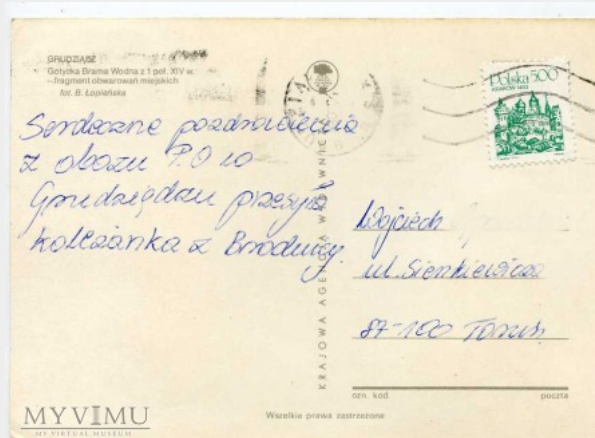 GRUDZIĄDZ
Gotycka Brama Wodna z 1 poł. XIV w.
—fragment obwarowań miejskich
fot. B. Łopieńska
Serdeczne pozdrowienia
z obozu P.O w
Grudziądzu przesyła
koleżanka z Brodnicy.
KRAJOWA AGENCJA WYDAWNICZA
Polska 500
KRAKÓW 1493
Wojciech
ul. Sienkiewicza
87-100 Toruń
ozn. kod. poczta
Wszelkie prawa zastrzeżone
MYVIMU
MY VIRTUAL MUSEUM